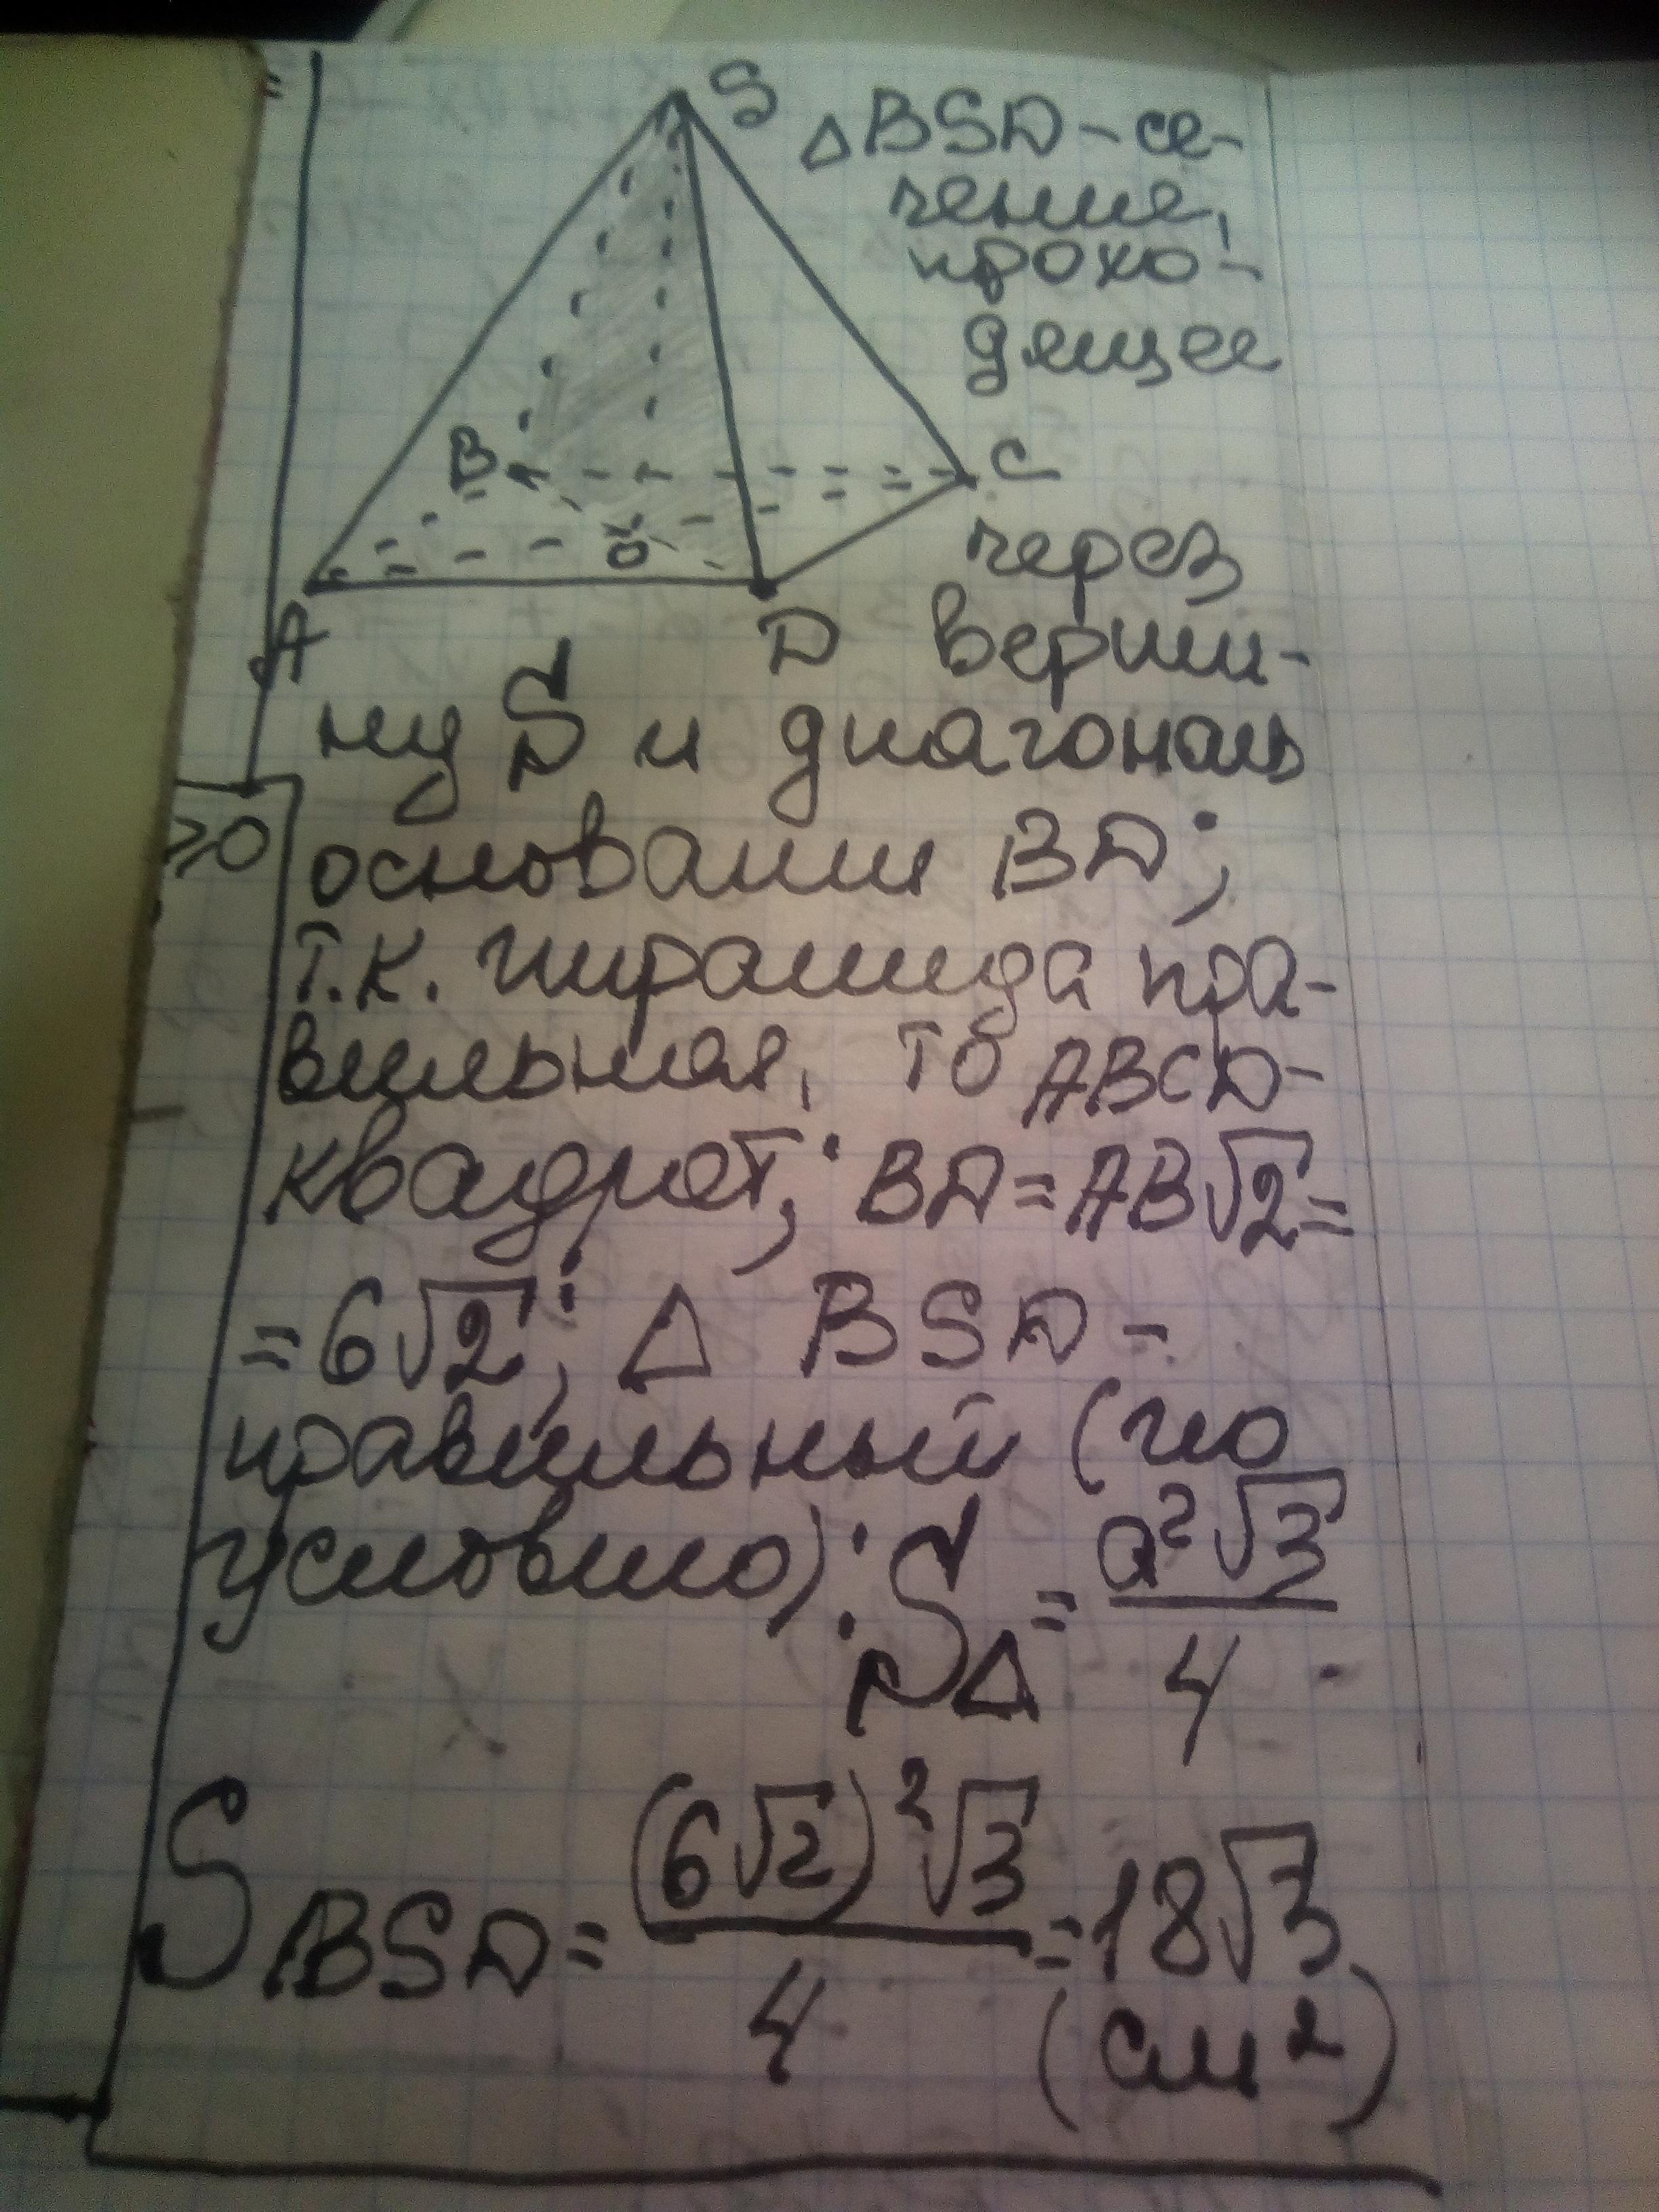 S
△BSD - се-
чение,
прохо-
дящее
B
C
O
через
A
D
верши-
ну S и диагональ
≥0
основании BD;
т.к. пирамида пра-
вильная, то ABCD -
квадрат; BD = AB√2 =
= 6√2; △ BSD -
правильный (по
условию); S△ = a²√3/4.
S BSD = (6√2)²√3/4 = 18√3
(см²)